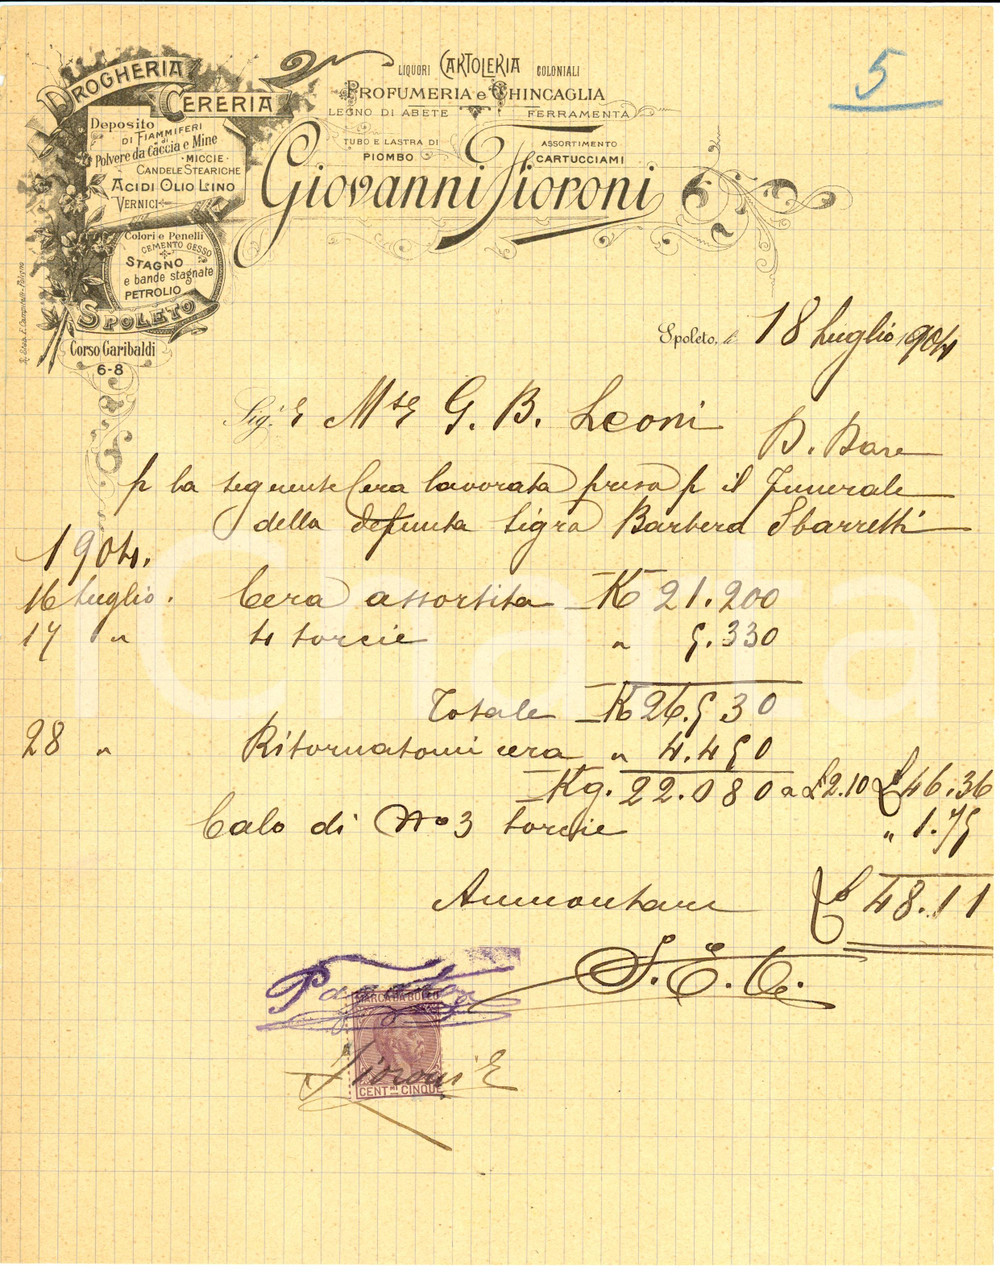 DROGHERIA
CERERIA
Deposito
DI FIAMMIFERI
di
Polvere da Caccia e Mine
MICCIE
CANDELE STEARICHE
ACIDI OLIO LINO
VERNICI
Colori e Penelli
CEMENTO GESSO
STAGNO
e bande stagnate
PETROLIO
SPOLETO
Corso Garibaldi
6-8
LIQUORI CARTOLERIA COLONIALI
PROFUMERIA e CHINCAGLIA
LEGNO DI ABETE FERRAMENTA
TUBO E LASTRA DI PIOMBO
ASSORTIMENTO CARTUCCIAMI
Giovanni Fioroni
5
Spoleto, li 18 Luglio 1904
Sig. G. B. Leoni
D. Dare
p la seguente Cera lavorata presa p il Funerale
della defunta Sigra Barbera Sbarretti
1904.
16 Luglio. Cera assortita K 21.200
17 " 4 torcie " 5.330
Totale K 26.530
28 " Ritornatomi cera " 4.450
Kg. 22.080 a £ 2.10 £ 46.36
Calo di No 3 torcie " 1.75
Ammontare £ 48.11
S. E. O.
Pagato
MARCA DA BOLLO
Fioroni
CENT.MI CINQUE
iCharta